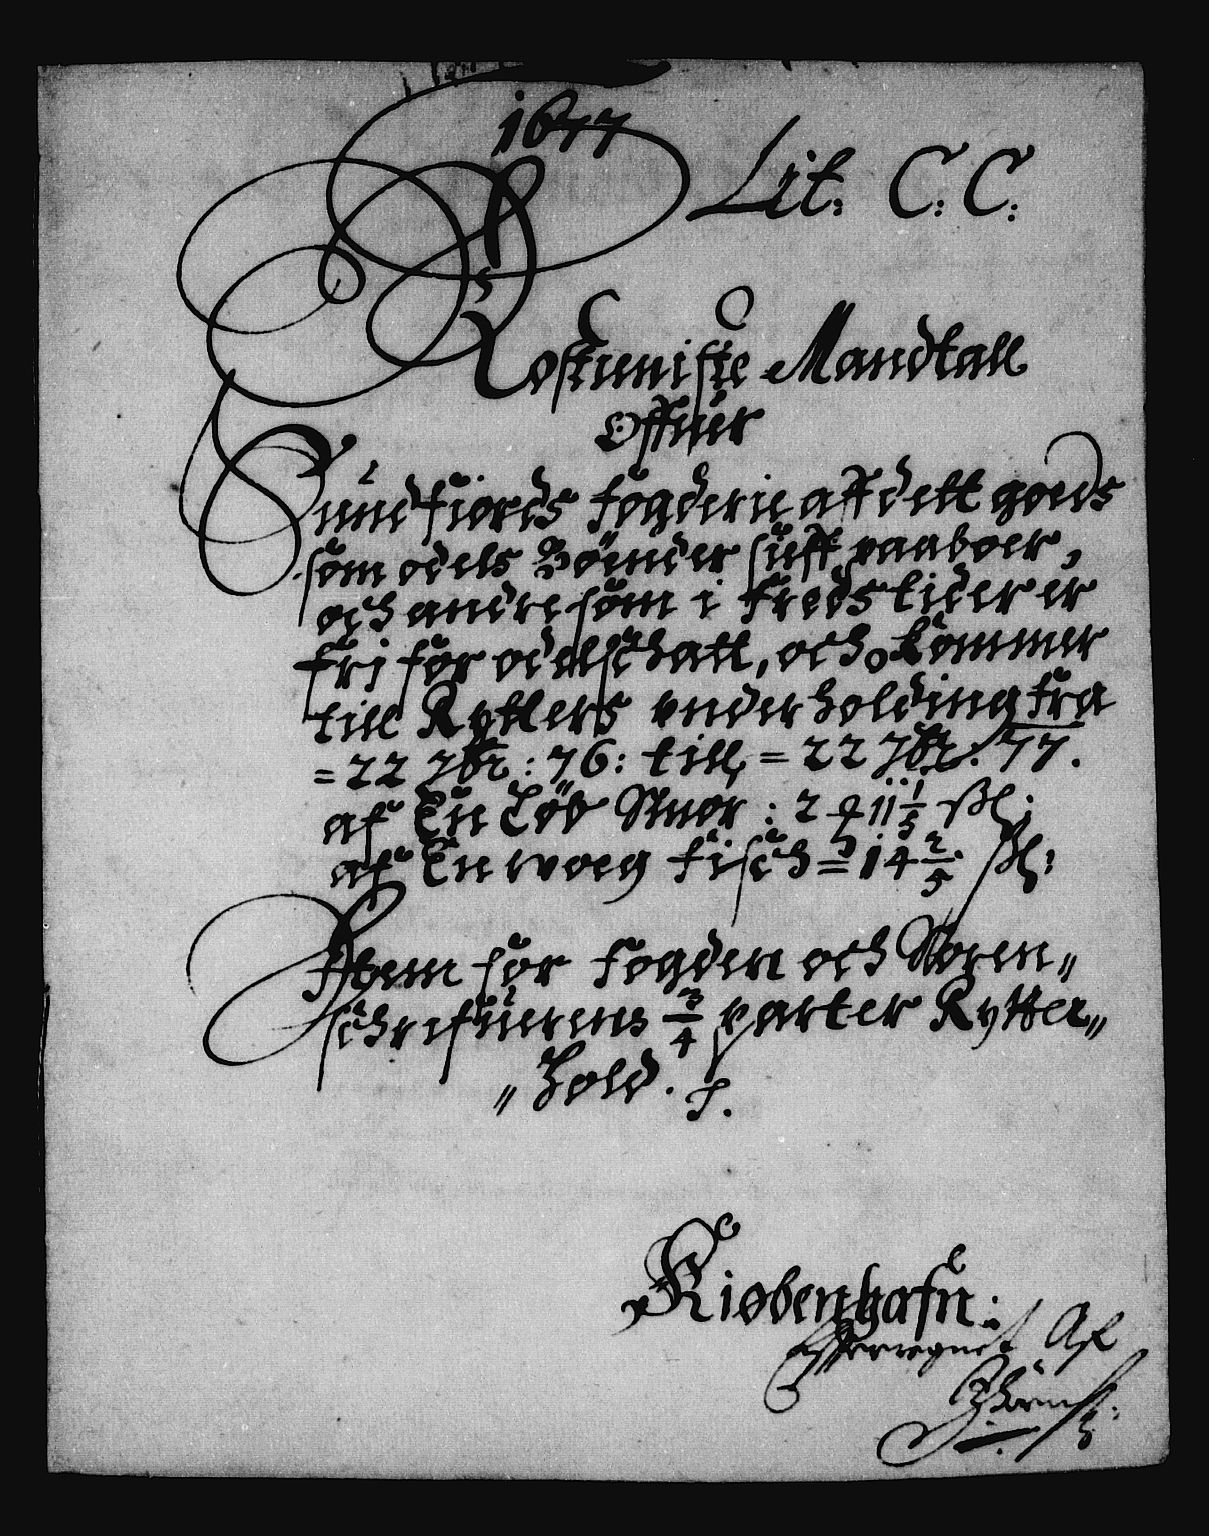 1677
Lit: C: C:
Rostieniste Mandtall
Offuer
Sundfiords fogderie aff dett goeds
som odels Bønder sielff paaboer,
och andre som i freds tider er
fri for odelschatt, och kommer
till Rytters vnderholding fra
= 22 7br: 76: till = 22 7br: 77.
af En Løb Smør : 2 ₰ 11 1/5 ßl:
af En woeg fisch = 14 2/5 ßl:
Item for fogden och Soren„
schrifuerens 3/4 parter Rytter„
„hold.
Kiøbenhafn:
Efferregnet Af